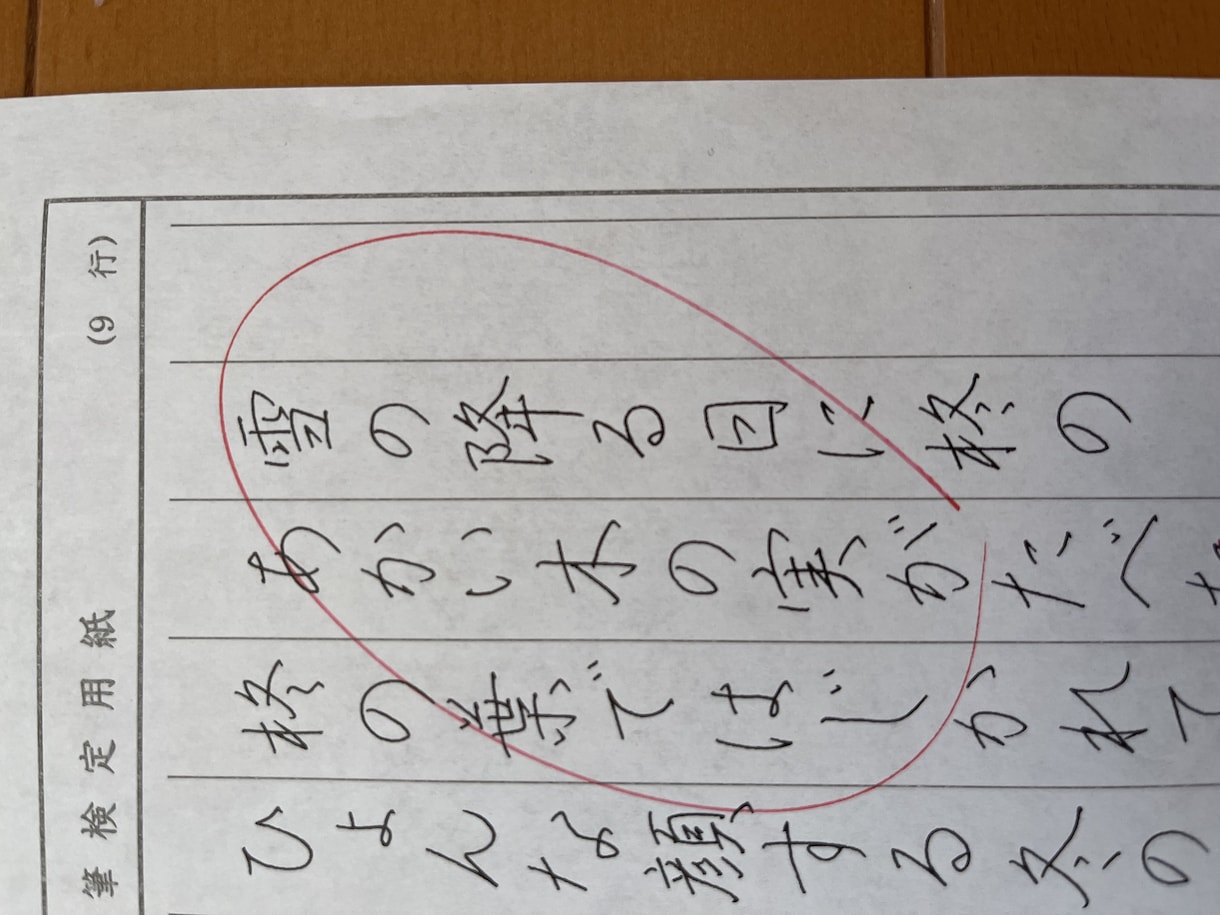 筆検定用紙 (9 行)
雪の降る日に柊の
あかい木の実がたべ
柊の葉ではじかれて
ひょんな顔する冬の